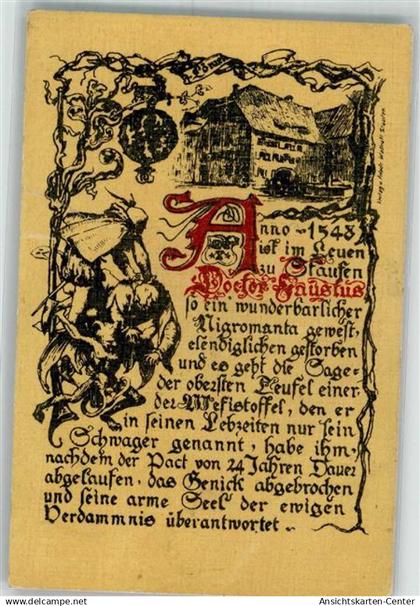 z. Löwen
Anno 1548
ist im Leuen
zu Staufen
Doctor Faustus
so ein wunderbarlicher
Nigromanta gewest,
elendiglichen gestorben
und es geht die Sage
der obersten Teufel einer
der Mefistoffel, den er
in seinen Lebzeiten nur sein
Schwager genannt, habe ihm,
nachdem der Pact von 24 Jahren Dauer
abgelaufen, das Genick abgebrochen
und seine arme Seel der ewigen
Verdammnis überantwortet
Ansichtskarten-Center